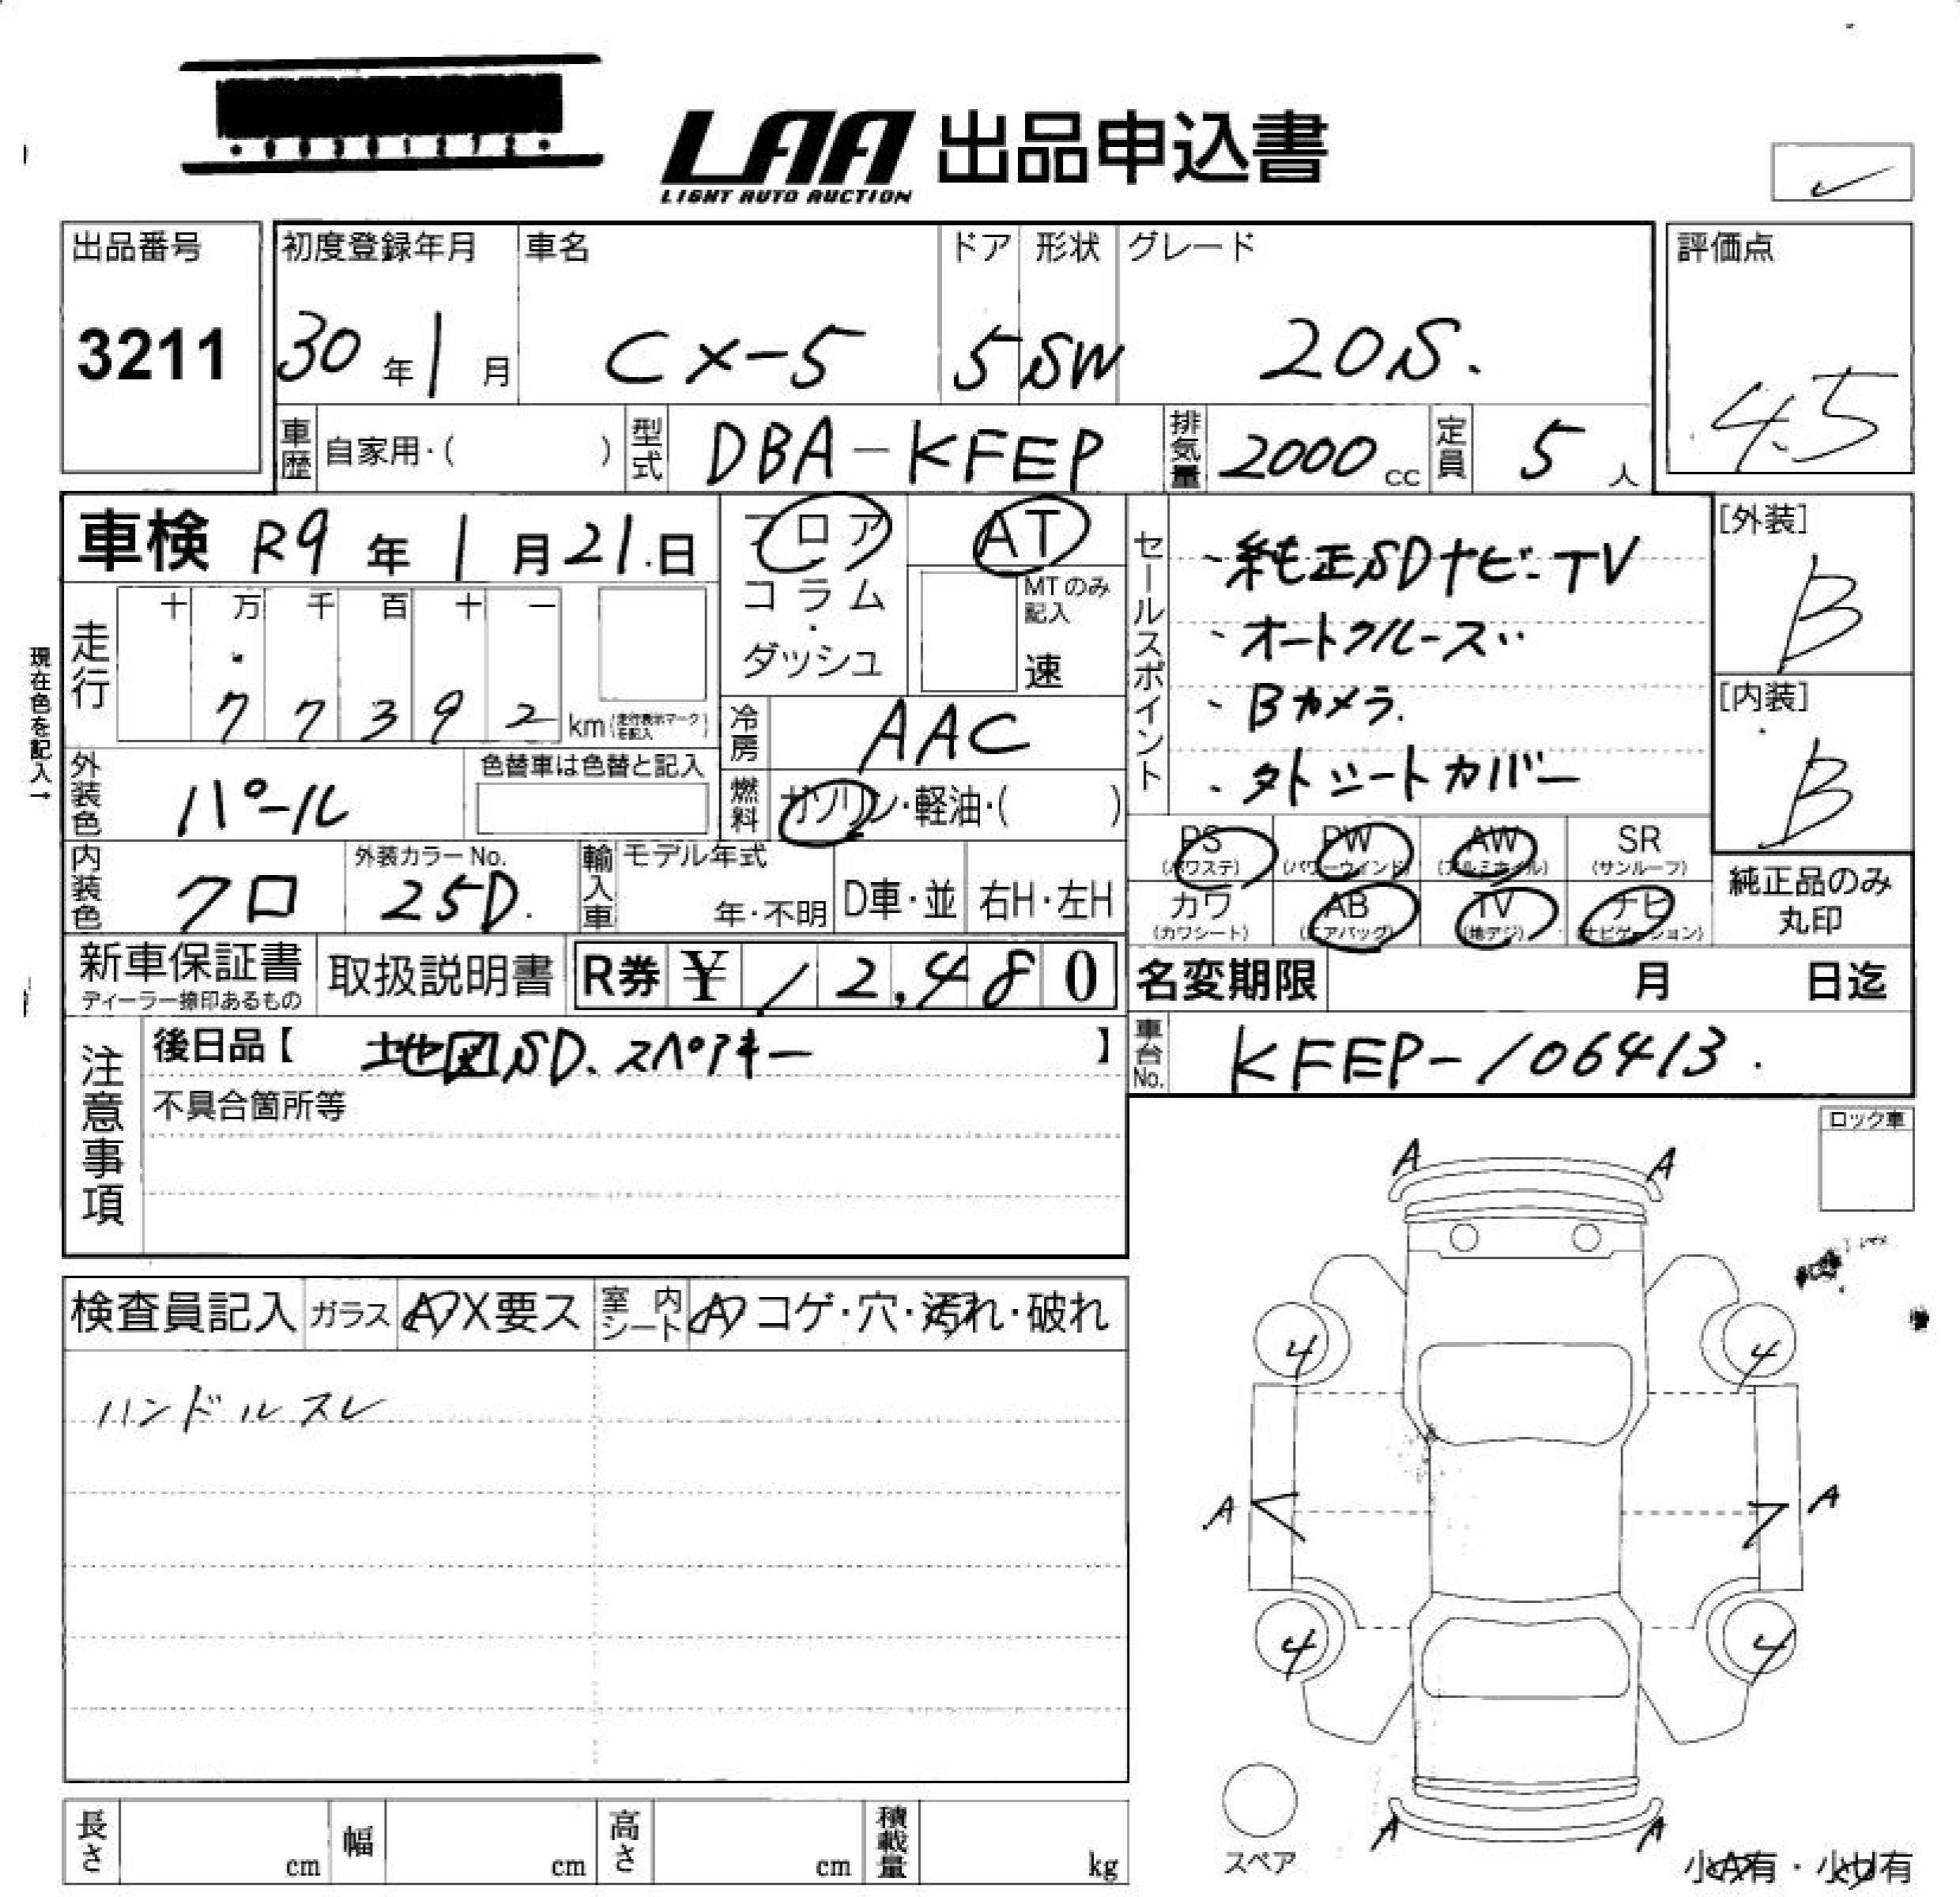 LAA 出品申込書
LIGHT AUTO AUCTION
出品番号
3211
初度登録年月
30年1月
車名
CX-5
ドア
5
形状
SW
グレード
20S.
評価点
4.5
車歴 自家用・( )
型式 DBA-KFEP
排気量 2000cc
定員 5人
車検 R9年1月21日
フロア
コラム・ダッシュ
AT
MTのみ記入
速
走行
十 万 千 百 十 一
7 7 3 9 2 km (走行表示マークを記入)
現在色を記入→
冷房 AAC
燃料 ガソリン・軽油・( )
外装色 パール
色替車は色替と記入
内装色 クロ
外装カラーNo.
25D.
輸入車
モデル年式
年・不明
D車・並
右H・左H
セールスポイント
・純正SDナビ-TV
・オートクルーズ
・Bカメラ.
・シートカバー
[外装]
B
[内装]
B
PS (パワステ)
PW (パワーウインド)
AW (アルミホイル)
SR (サンルーフ)
カワ (カワシート)
AB (エアバッグ)
TV (地デジ)
ナビ (ナビゲーション)
純正品のみ丸印
新車保証書
ディーラー捺印あるもの
取扱説明書
R券 ¥12,480
名変期限 月 日迄
注意事項
後日品【 地図SD.スペアキー 】
不具合箇所等
車台No. KFEP-106413.
ロック車
検査員記入
ガラス A X要ス
室内シート A コゲ・穴・汚れ・破れ
ハンドルスレ
A A
4 4
A A
4 4
A A
スペア
小A有・小U有
長さ cm
幅 cm
高さ cm
積載量 kg